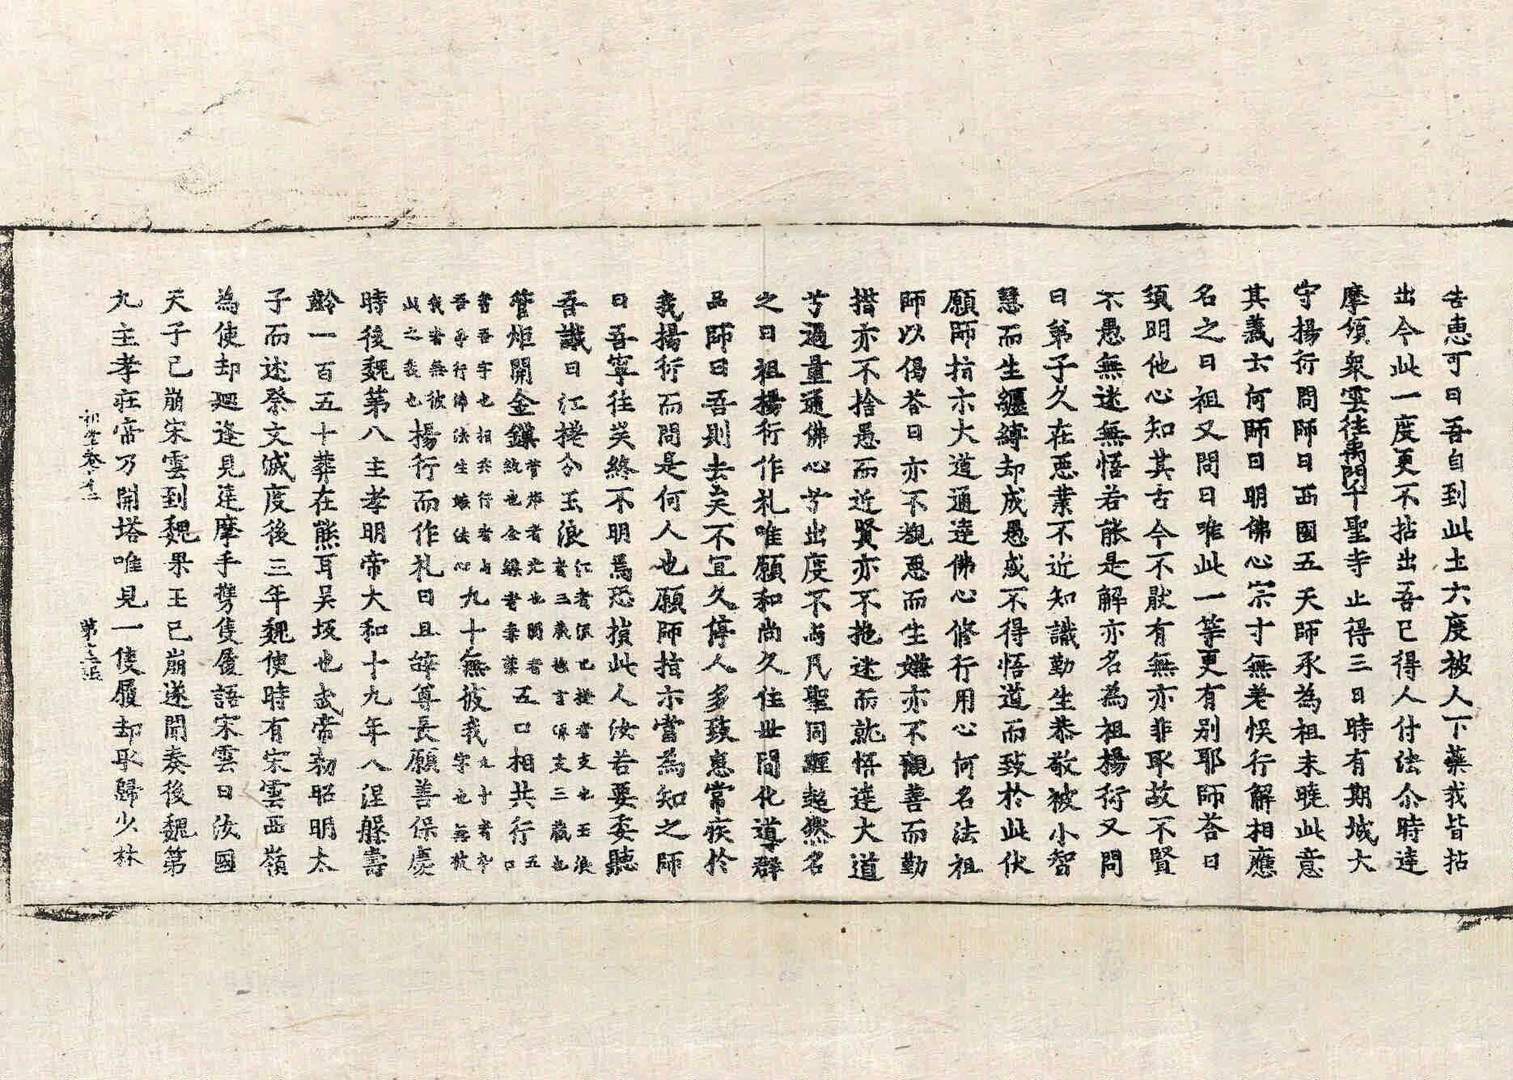 告惠可曰吾自到此土六度被人下藥我皆拈
出今此一度更不拈出吾已得人付法尒時達
摩領衆雲往禹門千聖寺止得三日時有期城大
守揚衒問師曰西國五天師承為祖未曉此意
其義云何師曰明佛心宗寸無差悮行解相應
名之曰祖又問曰唯此一等更有別耶師荅曰
須明他心知其古今不猒有無亦非取故不賢
不愚無迷無悟若能是解亦名為祖揚衒又問
曰弟子久在惡業不近知識勤生恭敬被小智
慧而生纒縛却成愚惑不得悟道而致於此伏
願師指示大道通達佛心修行用心何名法祖
師以偈荅曰亦不覩惡而生嫌亦不觀善而勤
措亦不捨愚而近賢亦不抱迷而就悟達大道
兮過量通佛心兮出度不与凡聖同纒超然名
之曰祖揚衒作礼唯願和尚久住世間化導群
品師曰吾則去矣不宜久停人多致患常疾於
我揚衒而問是何人也願師指示當為知之師
曰吾寧往矣終不明焉恐損此人汝若要委聽
吾讖曰江槎分玉浪江者流也槎者支也玉浪者三藏捴言流支三藏也
管炬開金鏁管炬者光也開者敨也金鏁者毒藥五口相共行五口
者吾字也相共行者与吾爭行佛法生嫉妬心九十無彼我九十者卒字也無彼
我者無彼此之我也揚衒而作礼曰且辝尊長願善保慶
時後魏第八主孝明帝大和十九年入涅槃壽
齡一百五十葬在熊耳吴坂也武帝勑昭明太
子而述祭文滅度後三年魏使時有宋雲西嶺
為使却廻逢見達摩手携隻履語宋雲曰汝國
天子已崩宋雲到魏果王已崩遂聞奏後魏第
九主孝莊帝乃開塔唯見一隻履却取歸少林
祖堂卷十二